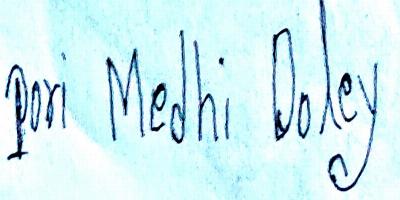 Pori Medhi Doley